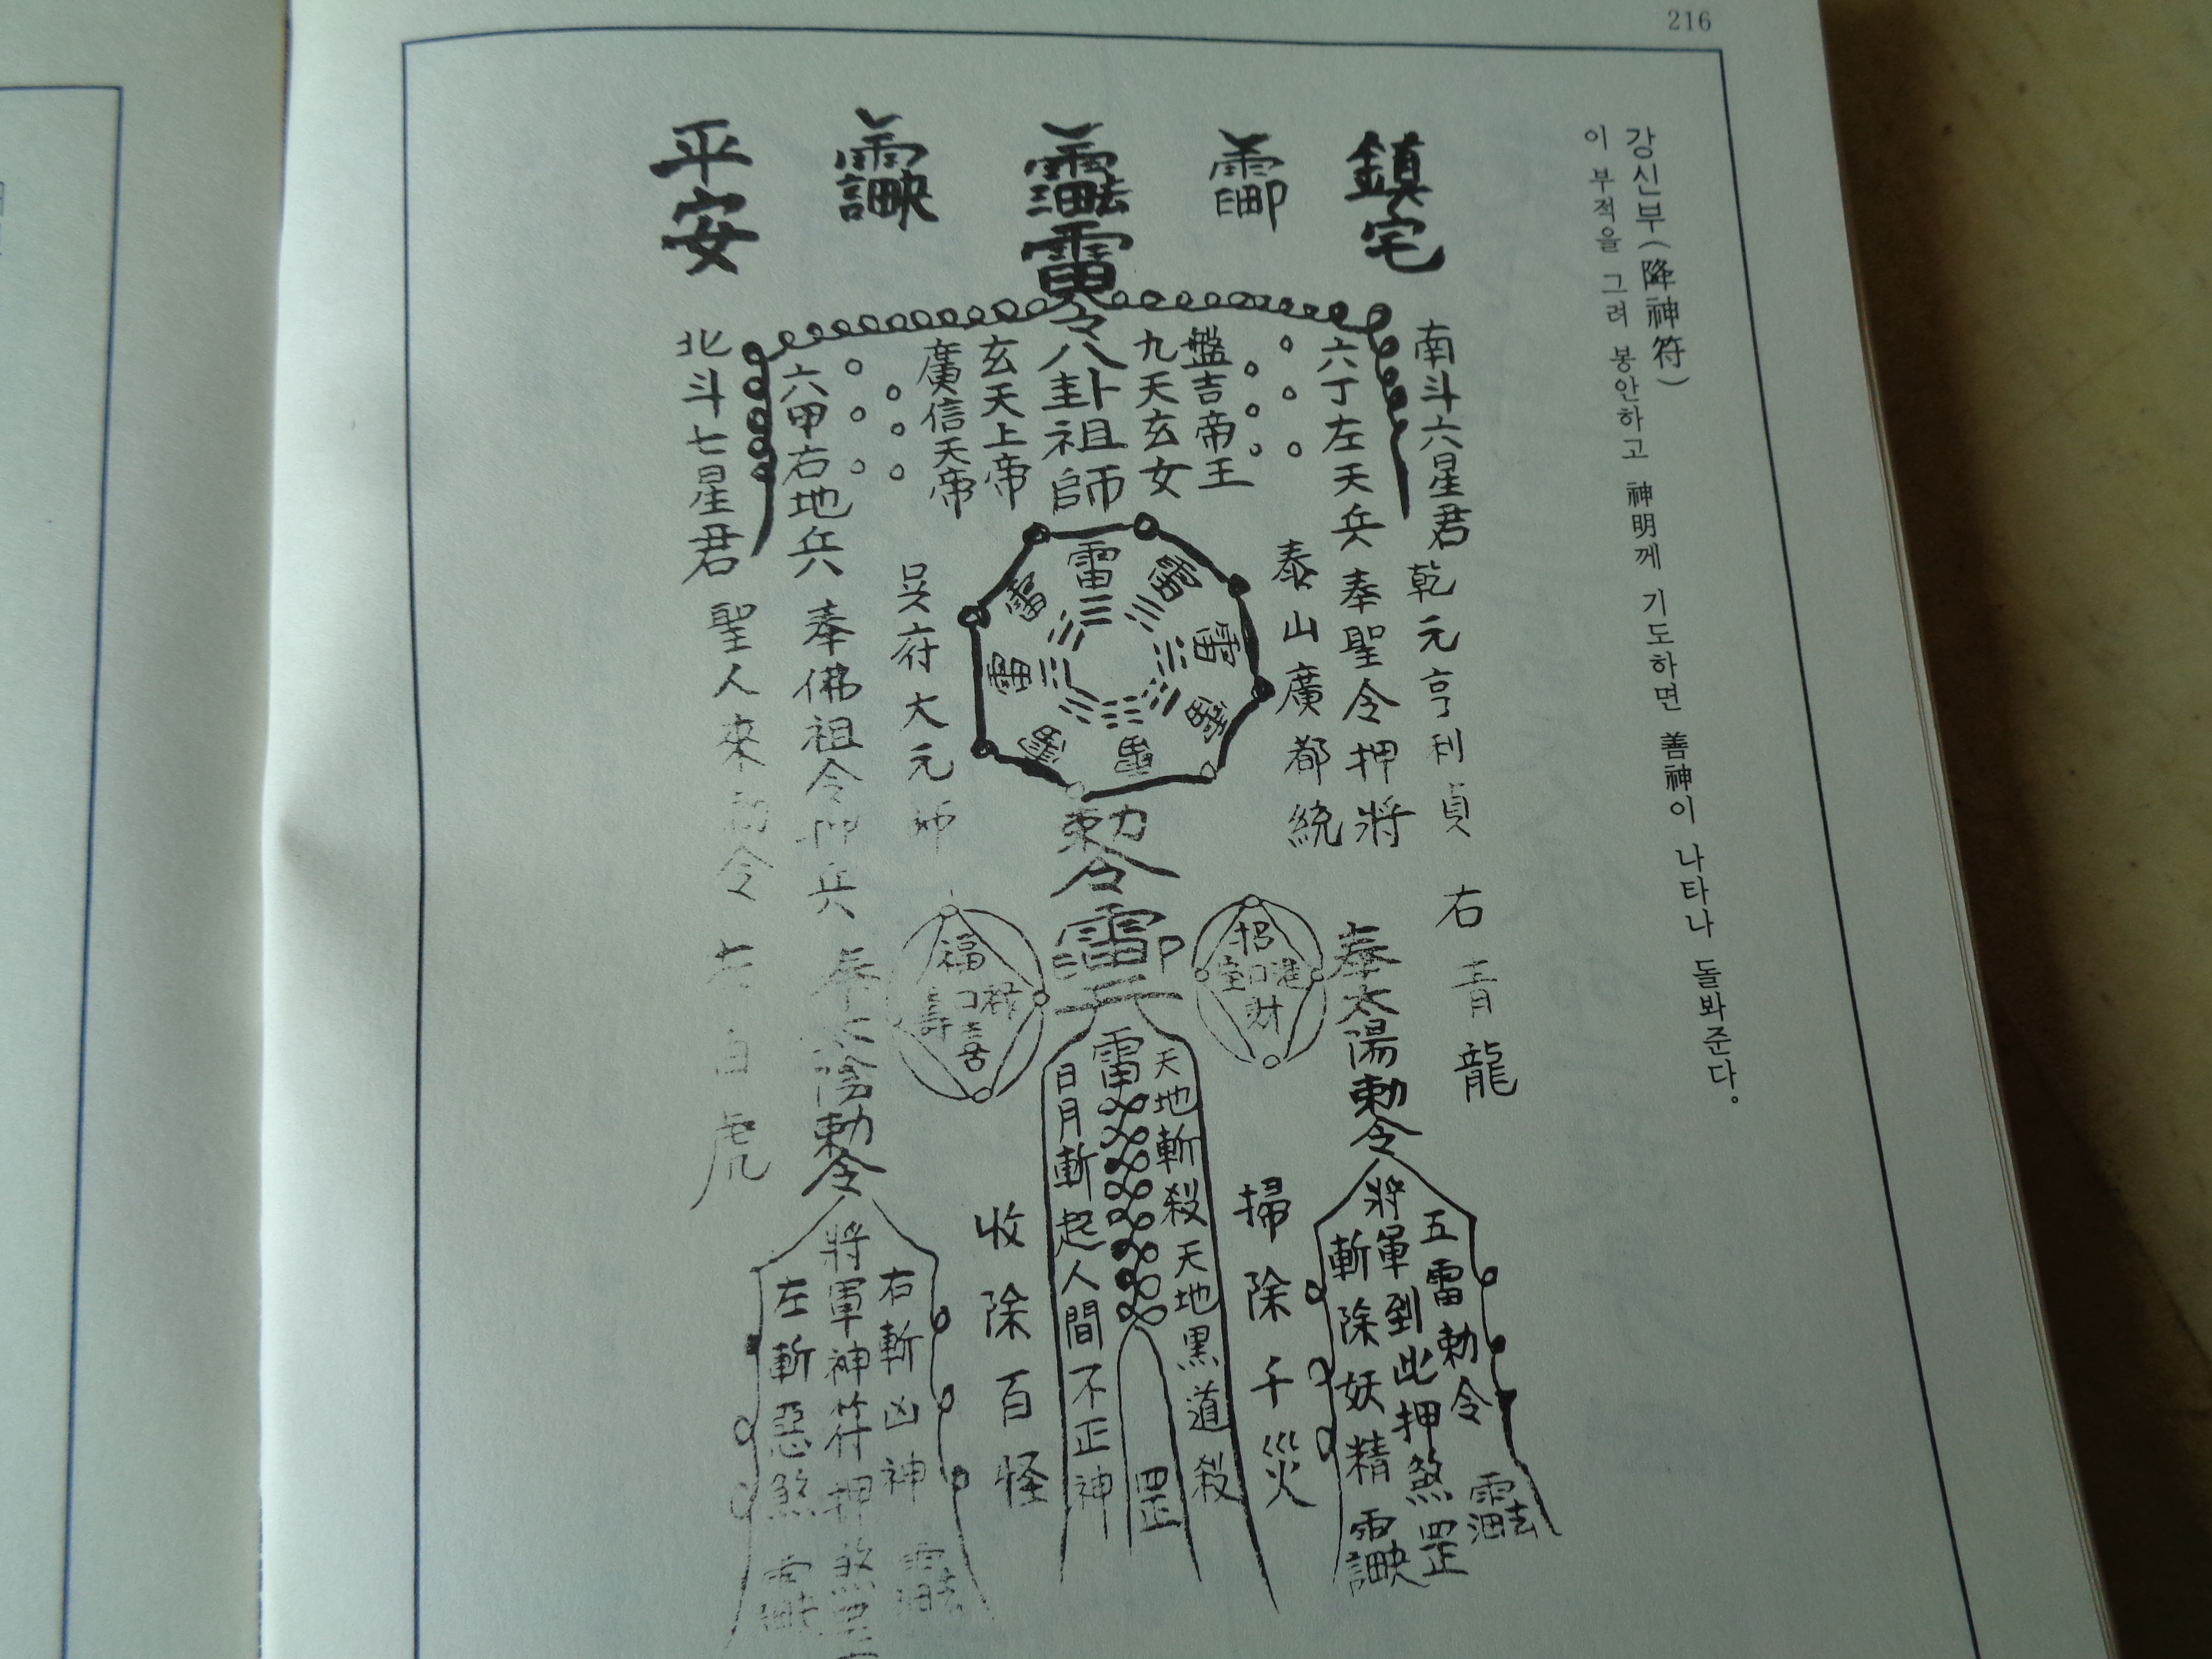 216
강신부(降神符)
이 부적을 그려 봉안하고 神明께 기도하면 善神이 나타나 돌봐준다.
鎮宅
平安
雷令八卦祖師
南斗六星君 乾元亨利貞 右青龍
六丁左天兵 奉聖令押將
泰山廣都統
盤吉帝王
九天玄女
玄天上帝
廣信天帝
吳府大元帥
六甲右地兵 奉佛祖令押兵
北斗七星君 聖人來勅令 左白虎
雷
雷
雷
雷
雷
勅令
兵
招
進
財
福
祿
壽
奉太陽勅令
五雷勅令
將軍到此押煞罡
斬除妖精
掃除千災
雷
天地斬殺天地黑道殺
罡
日月斬起人間不正神
收除百怪
奉太陰勅令
右斬凶神
將軍神符押煞
左斬惡煞